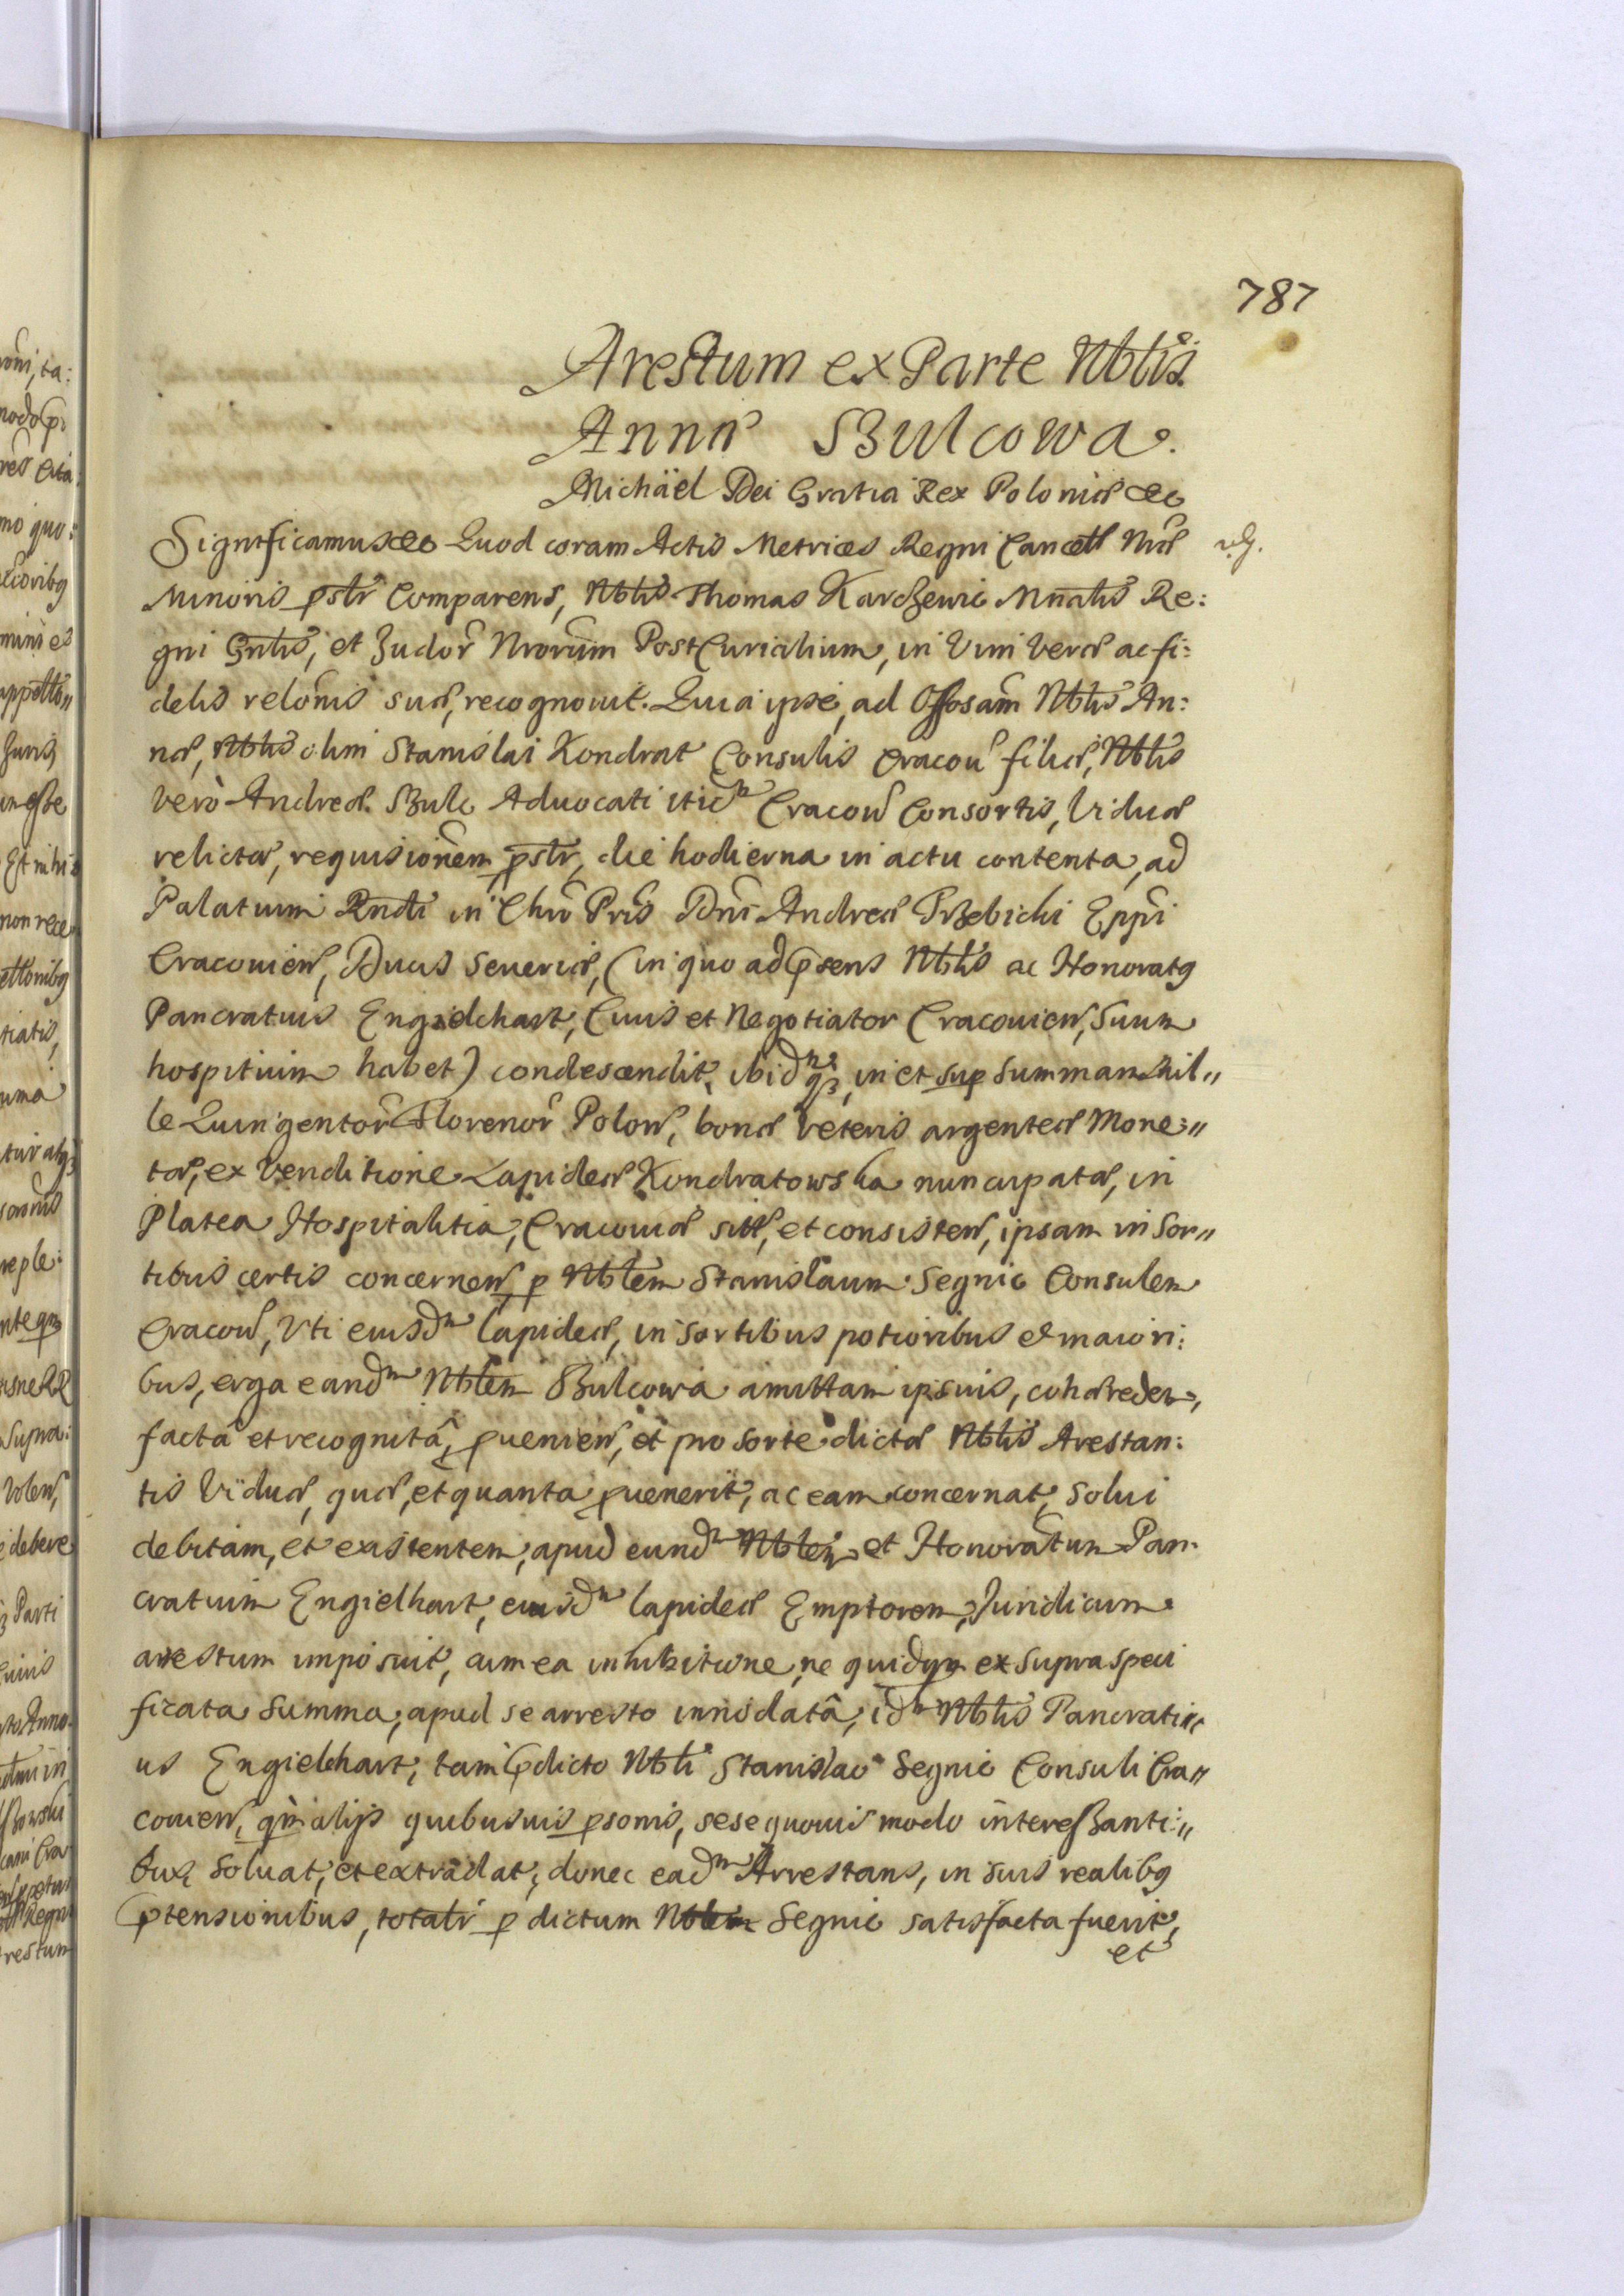 787
Arestum ex Parte Nblis
Annæ Bulcowa.
Michäel Dei Gratia Rex Poloniæ &c
Significamus &c Quod coram Actis Metrices Regni Cancell Nræ
Minoris pstr Comparens, Nblis Thomas Karczewic Mnrlis Re:
gni Gnlis, et Judor Nrorum PostCurialium, in Vim veræ ac fi:
delis relonis suæ, recognouit. Quia ipse, ad Offosam Nblis An:
næ, Nblis olim Stanislai Kondrat Consulis Cracou filiæ, Nblis
vero Andreæ Bulc Aduocati itid Cracou Consortis, Viduæ
relictæ, requisionem pstr, die hodierna in actu contenta, ad
Palatium Rndi in Chro Pris Dni Andreæ Trzebicki Eppi
Cracouien, Ducis Seueriæ, (in quo ad psens Nblis ac Honoratq
Pancratius Engielchart, Ciuis et Negotiator Cracouien, Suum
hospitium habet) condescendit, ibidqz, in et sup summam Mil„
le Quingentor Florenor Polon, bonæ veteris argenteæ Mone:„
tæ, ex Venditione Lapideæ Kondratowska nuncupatæ, in
Platea Hospitalitia, Cracouiæ sitæ, et consisten, ipsam in sor„
tibus certis concernen, p Nblem Stanislaum Segnic Consulem
Cracou, Vti eiusd Lapideæ, in sortibus potioribus et maiori:
bus, erga eand Nblem Bulcowa amittam ipsius, cohæredem,
factâ et recognitâ, puenien, et pro sorte dictæ Nblis Arestan:
tis Viduæ, quæ, et quanta puenerit, ac eam concernat, solui
debitam, et existentem, apud eund Nblem et Honoratum Pan
cratium Engielhart, eiusd lapideæ Emptorem, Juridicum
arrestum imposuit, cum ea inhibitione, ne quidqm ex supraspeci
ficata summa, apud se arresto innodatâ, id Nblis Pancrati„
us Engielchart, tam pdicto Nbli Stanislao Segnic Consuli Cra„
couien, qm alijs quibusuis psonis, sese quouis modo intereßanti:„
bus soluat, et extradat, donec ead Arrestans, in suis realibq
ptensionibus, totalr p dictum Nblem Segnic satisfacta fuerit,
et